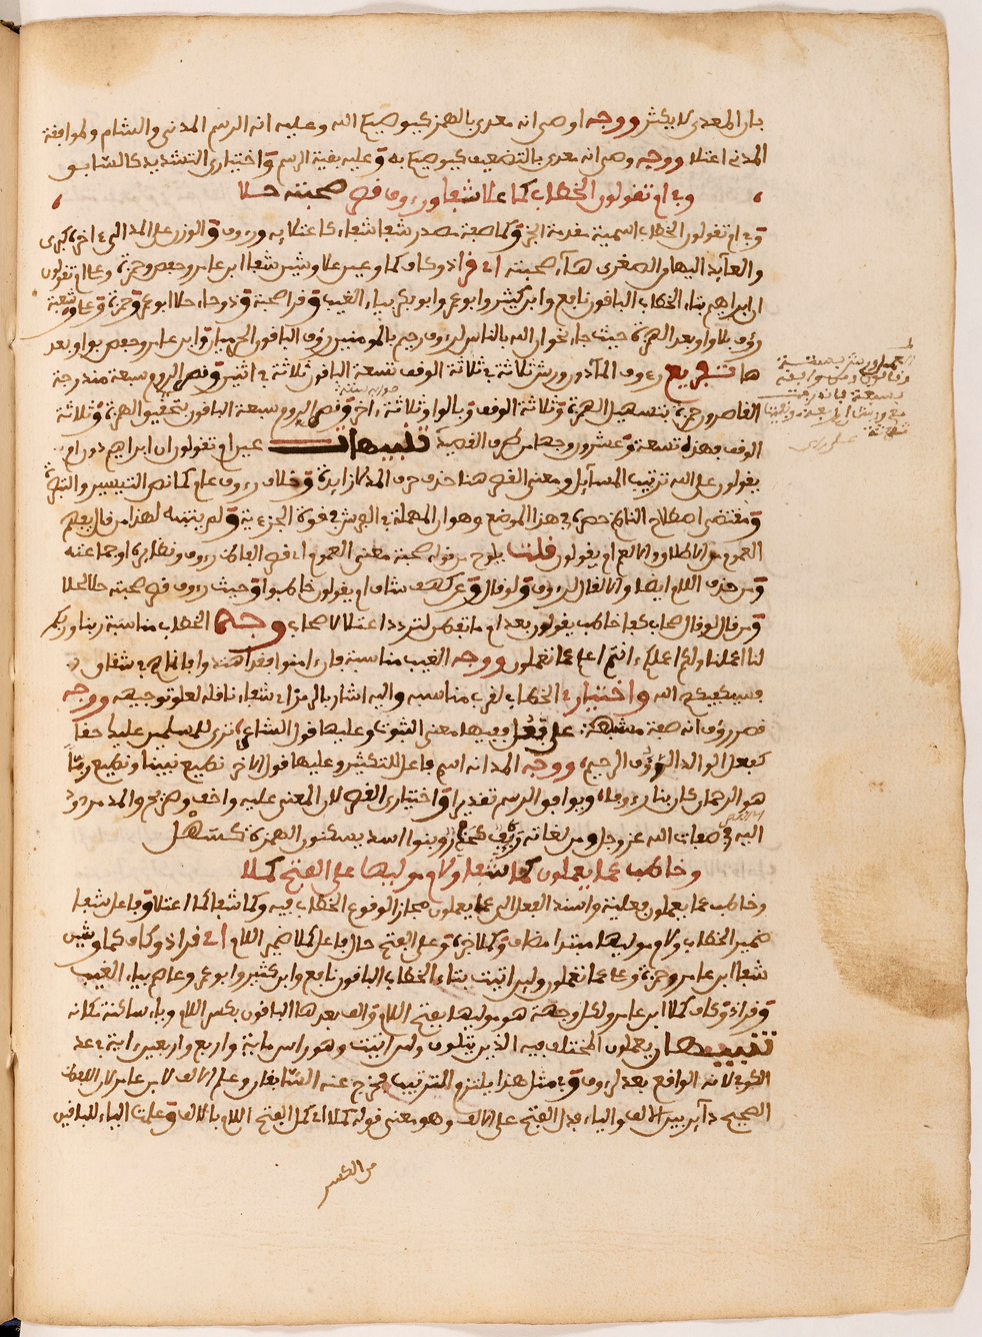 بان المعدى لا يكثر ووجه اوصى انه معدى بالهمز كيوصيكم الله وعليه انه الرسم المدني والشام ولموافقة
المدنى اعتلا ووجه وصى انه معدى بالتضعيف كيوصيكم به وعليه بقية الرسم واختيارى التشديد كالسابق
وفى ام تقولون الخطاب كما علا شفا ورءوف قصر صحبته حلا
وفى ام تقولون الخطاب اسمية مقدمة الخبر وكما صفة مصدر شفا شفاء كاعتلائه ورءوف والوزن على المد التى اخرى كبرى
والعائد اليها والصغرى هاء صحبته اى قرا ذو كاف كما وعين علا وشين شفا ابن عامر وحفص وحمزة وعلى ام تقولون
ان ابراهيم بتاء الخطاب الباقون نافع وابن كثير وابو عمرو وابو بكر بياء الغيب وقرا صحبة وذو حاء حلا ابو عمرو وحمزة وعلى وشعبة
رؤف بلا واو بعد الهمزة حيث جاء نحو ان الله بالناس لرءوف رحيم بالمومنين رؤف الباقون الحرميان وابن عامر وحفص بواو بعد
ها تفريع رءوف المآ دور ورش ثلاثة فى ثلاثة الوقف تسعة الباقون ثلاثة فى اثنين وقصر الروم سبعة مندرجة
القاصرون حمزة بتسهيل الهمزة وثلاثة الوقف وبالواو ثلاثة اخر وقصر الروم سبعة الباقون بتحقيق الهمزة وثلاثة
الوقف فهذه تسعة وعشرون وجها من طرق القصيد تنبيهات عين ام تقولون ان ابراهيم دون ام
يقولون على الله ترتيب المسايل ومعنى القصر هنا حذف حرف المد كان زايدة وخلاف رءوف عام كما نص التيسير والتبصرة
ومقتضى اصطلاح الناظم حصره فى هذا الموضع وهو ان المهملة فى العرش فى قوة الجزءية ولم يتنبه لهذا من قال يعلم
العموم من الاطلاق والا لعم ام يقولون قلت يلوح من قوله صحبة معنى العموم اى قصر الغاظ رءوف ونظايره او جماعته
ومن حذف اللام ايضا والا لقال لرءوف ولو قال وعن كهف شاف ام يقولون خاطبوا وحيث رءوف قصر صحبته حلا لحلا
ومن قال لو قال صحاب كفا خاطب يقولون بعد ام ما نقص لتردد اعتلا لاصحاب وجه الخطاب مناسبة ربنا وربكم
لنا اعملنا ولكم اعملكم اانتم اعلم عما تعملون ووجه الغيب مناسبة فان ءامنوا فقد اهتدوا فانما هم فى شقاق
فسيكفيكهم الله واختيارى الخطاب لقرب مناسبه واليه اشار بالرمز اى شفاء ناقله لعلو توجيهه ووجه
قصر رؤف انه صفة مشبهة على فعل ففيها معنى الثبوت وعليها قول الشاعر ترى للمسلمين عليك حقا
كفعل الوالد الرؤف الرحيم ووجه المد انه اسم فاعل للتكثير وعليها قول الاخر نطيع نبينا ونطيع ربا
هو الرحمان كان بنا رءوفا ويوافق الرسم تقديرا واختيارى القصر لان المعنى عليه واخف وضح والمد مردود
اليه فى صفات الله عز وجل ومن لغاته رئف كحذر وبنوا اسد بسكون الهمزة كسهل
وخاطب عما يعملون كما شفا ولام موليها على الفتح كملا
وخاطب عما يعملون فعلية واسند الفعل الى عما يعملون مجازا لوقوع الخطاب فيه وكما شفا كما اعتلا وفاعل شفا
ضمير الخطاب ولام موليها مبتدا مضاف وكملا خبره وعلى الفتح حال فاعل كملا ضمير اللام اى قرا ذو كاف كما وشين
شفا ابن عامر وحمزة وعلى عما تعملون ولين اتيت بتاء الخطاب الباقون نافع وابن كثير وابو عمرو وعاصم بياء الغيب
وقرا ذو كاف كملا ابن عامر ولكل وجهة هو موليها بفتح اللام والف بعدها الباقون بكسر اللام وياء ساكنة مكانه
تنبيهان يعملون المختلف فيه الذى يتلوه ولين اتيت وهو راس ماية واربع واربعين اية فى عد
الكوفى لانه الواقع بعد لرءوف وفى مثل هذا يلتزم الترتيب فخرج عنه السابقان وعلم الالف لابن عامر لان اللفظ
الصحيح دائر بين الالف والياء فدل الفتح على الالف وهو معنى قوله كملا اى كمل الفتح اللام بالالف وعلمت الياء للباقين
من الكسر